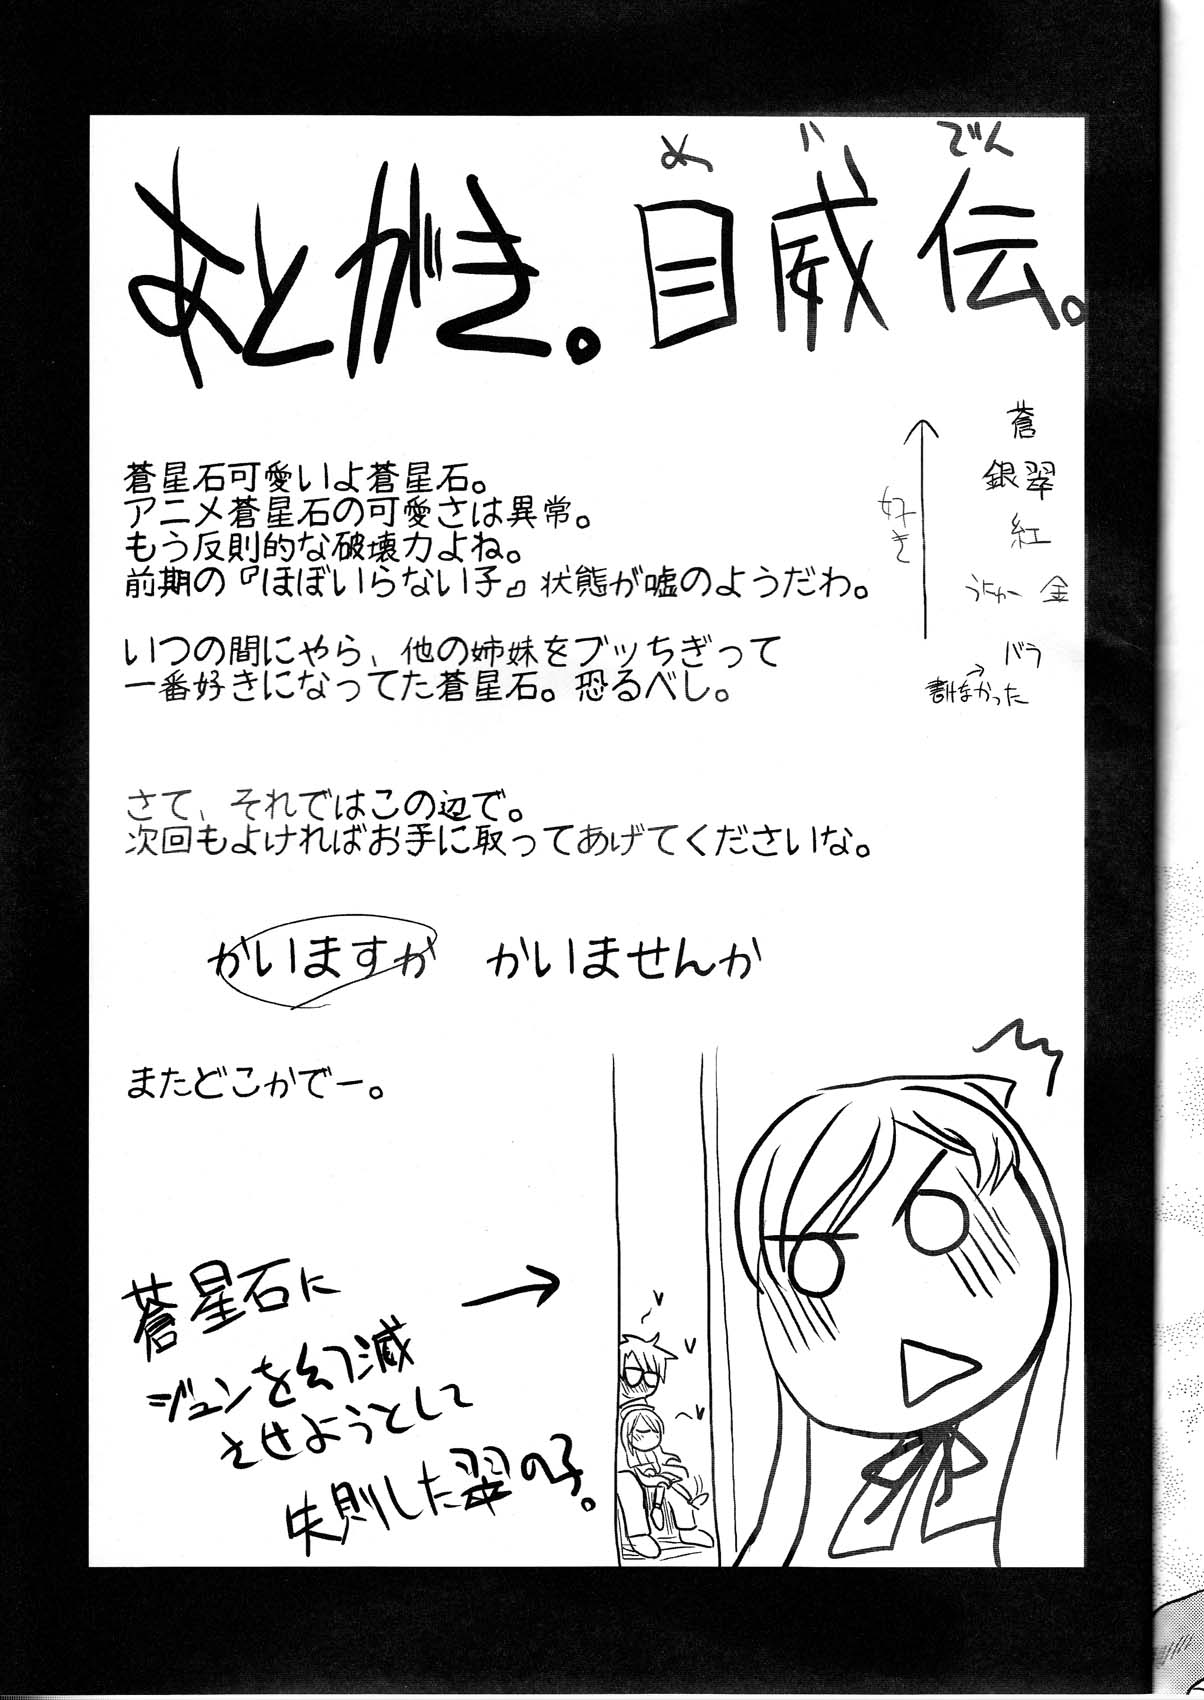 あとがき。目威伝。
めいでん
蒼星石可愛いよ蒼星石。
アニメ蒼星石の可愛さは異常。
もう反則的な破壊力よね。
前期の『ほぼいらない子』状態が嘘のようだわ。
いつの間にやら、他の姉妹をブッちぎって
一番好きになってた蒼星石。恐るべし。
好き
蒼
銀翠
紅
金
バラ
→
さて、それではこの辺で。
次回もよければお手に取ってあげてくださいな。
かいますか かいませんか
またどこかでー。
蒼星石に
ジュンを幻滅
させようとして
失則した翠の子。